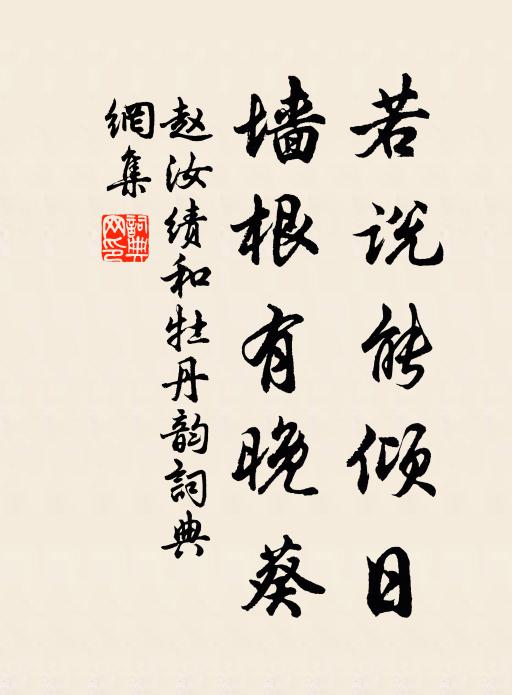 若说能倾日
墙根有晚葵
赵汝绩和牡丹韵詞典
網集
詞典
网印